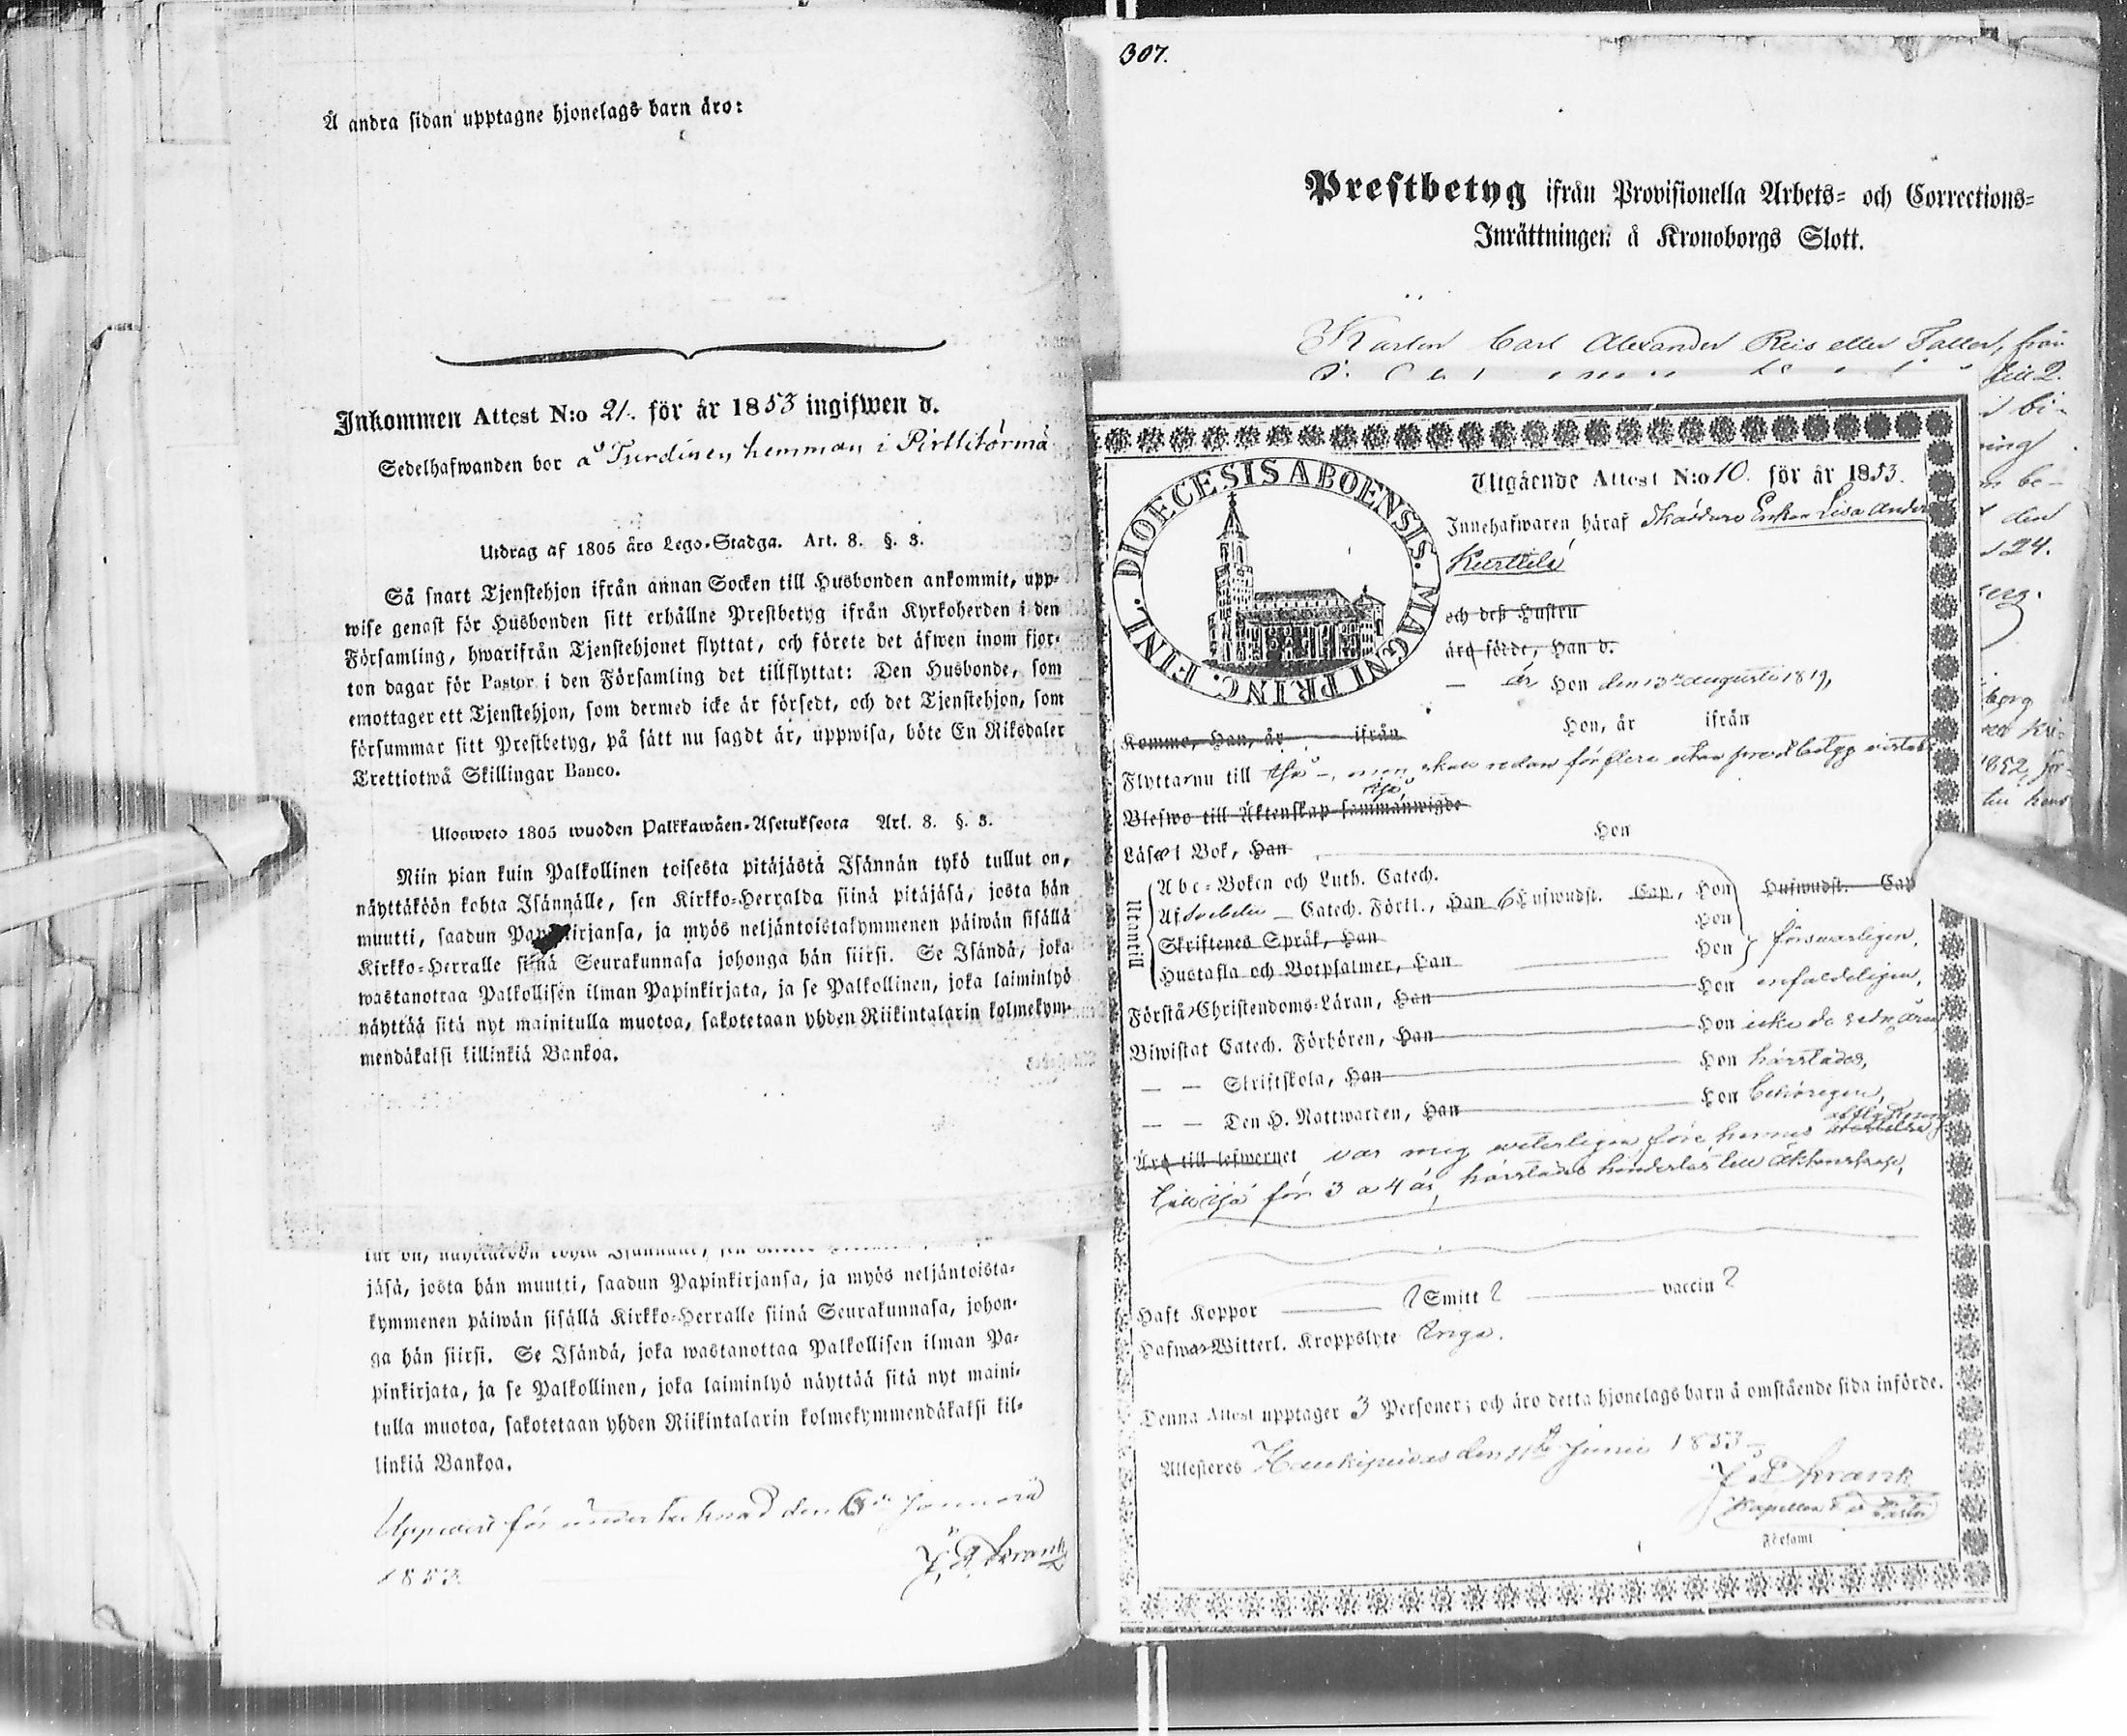 Å andra sidan upptagne hjonelags barn äro:
Inkommen Attest N:o 21. för år 1853 ingifwen d.
Sedelhafwanden bor å Turdinen hemman i Pirttitörmä
Utdrag af 1805 års Lego-Stadga. Art. 8. §. 3.
Så snart Tjenstehjon ifrån annan Socken till Husbonden ankommit, upp-
wise genast för Husbonden sitt erhållne Prestbetyg ifrån Kyrkoherden i den
Församling, hwarifrån Tjenstehjonet flyttat, och förete det äfwen inom fjor-
ton dagar för Pastor i den Församling det tillflyttat: Den Husbonde, som
emottager ett Tjenstehjon, som dermed icke är försedt, och det Tjenstehjon, som
försummar sitt Prestbetyg, på sätt nu sagdt är, uppwisa, böte En Riksdaler
Trettiotwå Skillingar Banco.
Ulosweto 1805 wuoden Palkkawäen-Asetuksesta Art. 8. §. 3.
Niin pian kuin Palkollinen toisesta pitäjästä Isännän tykö tullut on,
näyttäköön kohta Isännälle, sen Kirkko-Herralda siinä pitäjäsä, josta hän
muutti, saadun Papinkirjansa, ja myös neljäntoistakymmenen päiwän sisällä
Kirkko-Herralle siinä Seurakunnasa johonga hän siirsi. Se Isändä, joka
wastanottaa Palkollisen ilman Papinkirjata, ja se Palkollinen, joka laiminlyö
näyttää sitä nyt mainitulla muotoa, sakotetaan yhden Riikintalarin kolmekym-
mendäkaksi killinkiä Bankoa.
jäsä, josta hän muutti, saadun Papinkirjansa, ja myös neljäntoista-
kymmenen päiwän sisällä Kirkko-Herralle siinä Seurakunnasa, johon-
ga hän siirsi. Se Isändä, joka wastanottaa Palkollisen ilman Pa-
pinkirjata, ja se Palkollinen, joka laiminlyö näyttää sitä nyt maini-
tulla muotoa, sakotetaan yhden Riikintalarin kolmekymmendäkaksi kil-
linkiä Bankoa.
Uppvist för undertecknad den 6te Januarii
1853.
307.
Prestbetyg ifrån Provisionella Arbets- och Corrections-
Inrättningen å Kronoborgs Slott.
Karlen Carl Alexander Reis eller Faller, från
till 2.
bi-
ning
be-
den
24.
berg
1852, för
hans
DIOECESIS ABOENSIS. MAGNI PRINC. FINL.
Utgående Attest N:o 10. för år 1853.
Innehafwaren häraf Skäddare Enkan Lisa Anders
Kurttila
och deß Hustru
äro födde, Han d.
— är Hon den 13de augusti 1819,
Komme, Han, är ifrån Hon, är ifrån
Flyttar nu till Ijo —, men skall redan för flera utan prestbetyg vistats
Ijo
Blefwo till Äktenskap sammanwigde
Läser i Bok, Han Hon
Utantill
Abc-Boken och Luth. Catech.
Af Svebelii — Catech. Förkl., Han 6 Hufwudst. Cap., Hon Hufwudst. Cap
Hon
Skriftenes Språk, Han Hon försvarligen,
Hustafla och Botpsalmer, Han
Förstår Christendoms-Läran, Han Hon enfaldeligen,
Biwistat Catech. Förhören, Han Hon icke de sedn. åren
— — Skriftskola, Han Hon härstädes,
— — Den H. Nattwarden, Han Hon behörigen,
Äro till lefwernet var mig veterligen före hennes afflyttning
till Ijo för 3 a 4 år, härstädes hinderlös till äktenskap,
Haft Koppor ? Smitt ? vaccin ?
Hafwa Witterl. Kroppslyte Inga.
Denna Attest upptager 3 Personer; och äro detta hjonelags barn å omstående sida införde.
Attesteras Haukipudas den 11te Junii 1853
Församl